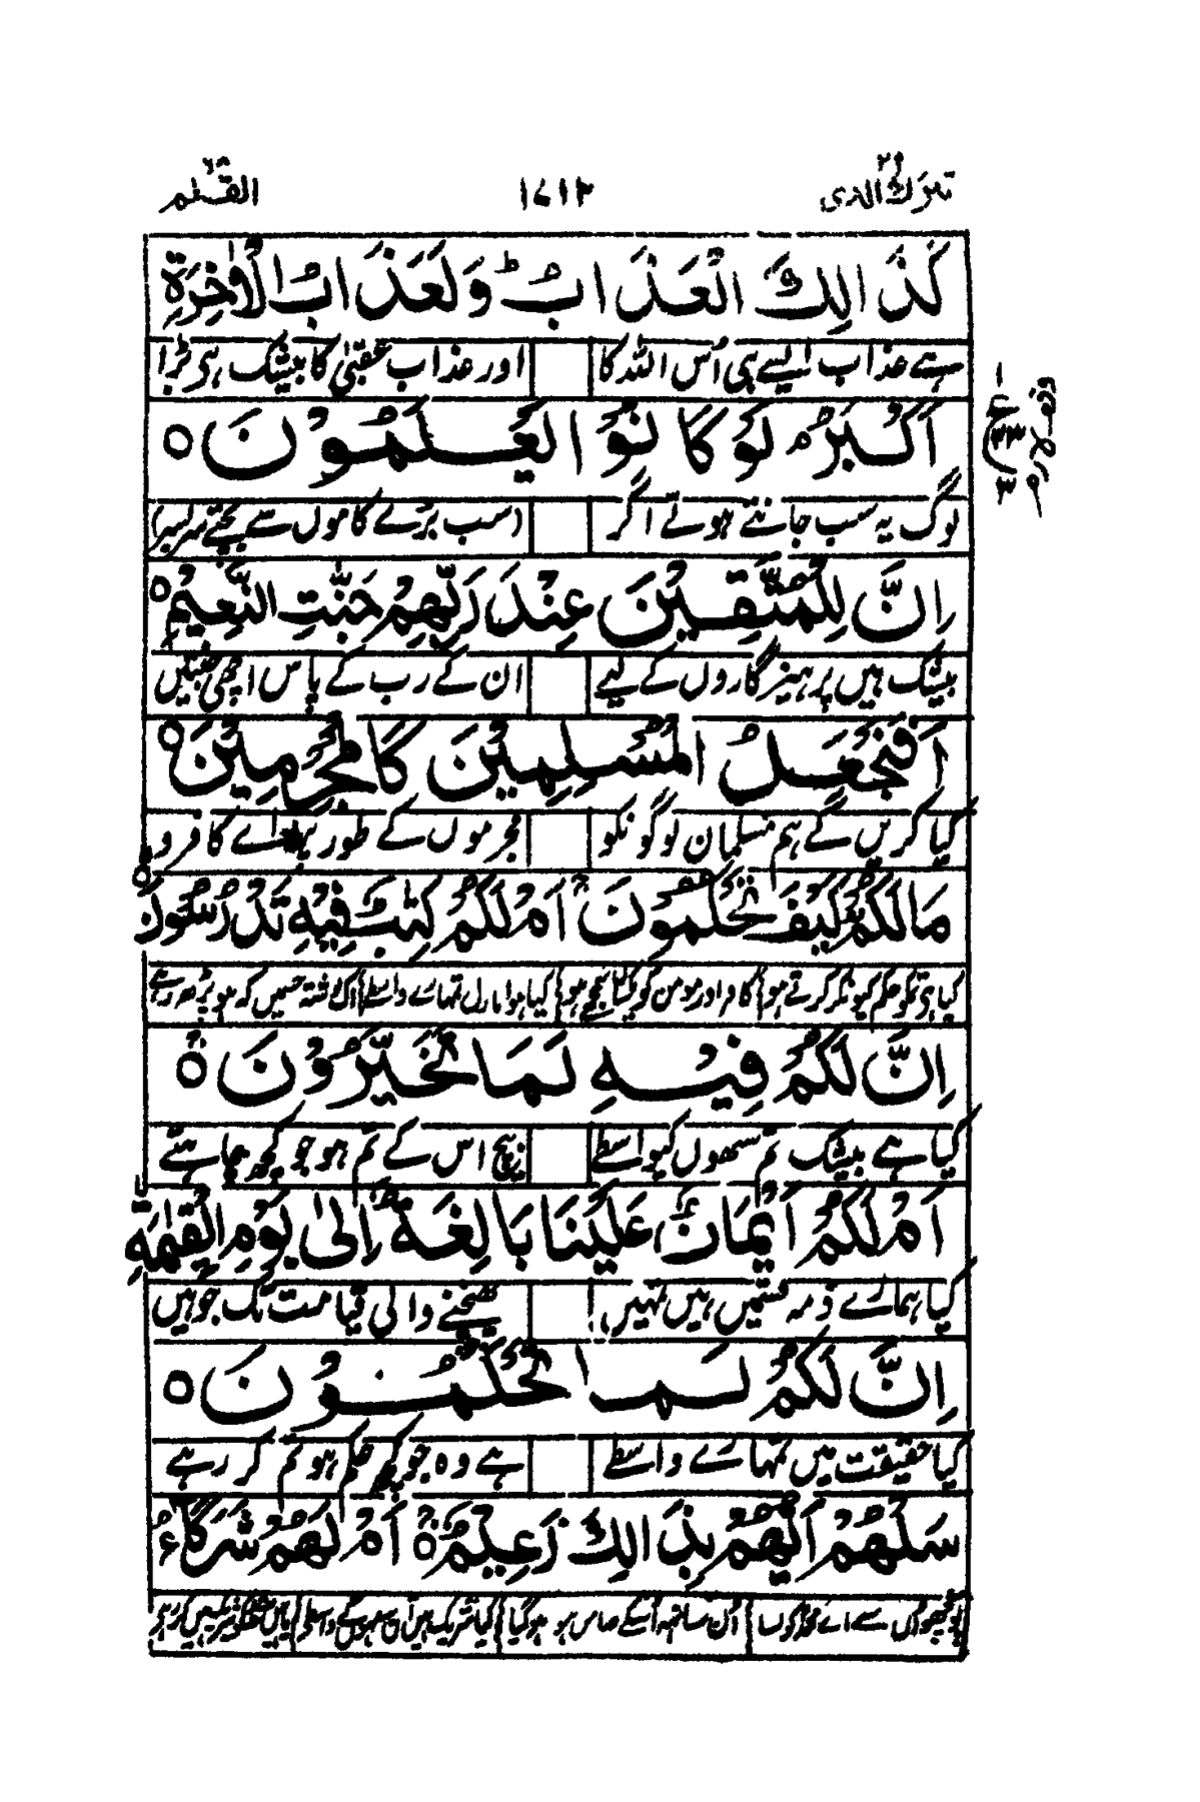 تبٰرك الذی ٢٩ ١٤١٢ القلم ٦٨
كَذَالِكَ الْعَذَابُ ؕ وَلَعَذَابُ الْاٰخِرَةِ
ہے عذاب ایسے ہی اُس اللہ کا اور عذاب عقبیٰ کا بیشک ہی بڑا
اَكْبَرُ ۘ لَوْ كَانُوْا يَعْلَمُوْنَ ○
لوگ یہ سب جانتے ہوتے اگر (سب بڑے کاموں سے بچتے سربسر)
اِنَّ لِلْمُتَّقِيْنَ عِنْدَ رَبِّهِمْ جَنّٰتِ النَّعِيْمِ ○
بیشک ہیں پرہیزگاروں کے لیے ان کے رب کے پاس اچھی جنتیں
اَفَنَجْعَلُ الْمُسْلِمِيْنَ كَالْمُجْرِمِيْنَ ○
کیا کریں گے ہم مسلمان لوگونکو مجرموں کے طور پر اے کافرو
مَا لَكُمْ كَيْفَ تَحْكُمُوْنَ ۚ اَمْ لَكُمْ كِتٰبٌ فِيْهِ تَدْرُسُوْنَ ○
کیا ہی تمکو حکم کیونکر کرتے ہو کافر اور مومن کو یکساں سمجھے ہو کیا ہوا نازل تمہارے واسطے اک نوشتہ جسمیں کہ ہو پڑھ رہے
اِنَّ لَكُمْ فِيْهِ لَمَا تَخَيَّرُوْنَ ○
کیا ہے بیشک تم سبھوں کیواسطے بیچ اس کے تم ہو جو کچھ چاہتے
اَمْ لَكُمْ اَيْمَانٌ عَلَيْنَا بَالِغَةٌ اِلٰى يَوْمِ الْقِيٰمَةِ
کیا ہمارے ذمہ قسمیں ہیں تمہیں پہنچنے والی قیامت تک جو ہیں
اِنَّ لَكُمْ لَمَا تَحْكُمُوْنَ ○
کیا حقیقت میں تمہارے واسطے ہے وہ جو کچھ حکم ہو تم کر رہے
سَلْهُمْ اَيُّهُمْ بِذَالِكَ زَعِيْمٌ ○ اَمْ لَهُمْ شُرَكَآءُ
سے اے محمد کون اُن ساتھ اُسکے ضامن ہو ہو گیا کیا شریک ہیں ان سبھوں کے واسطے